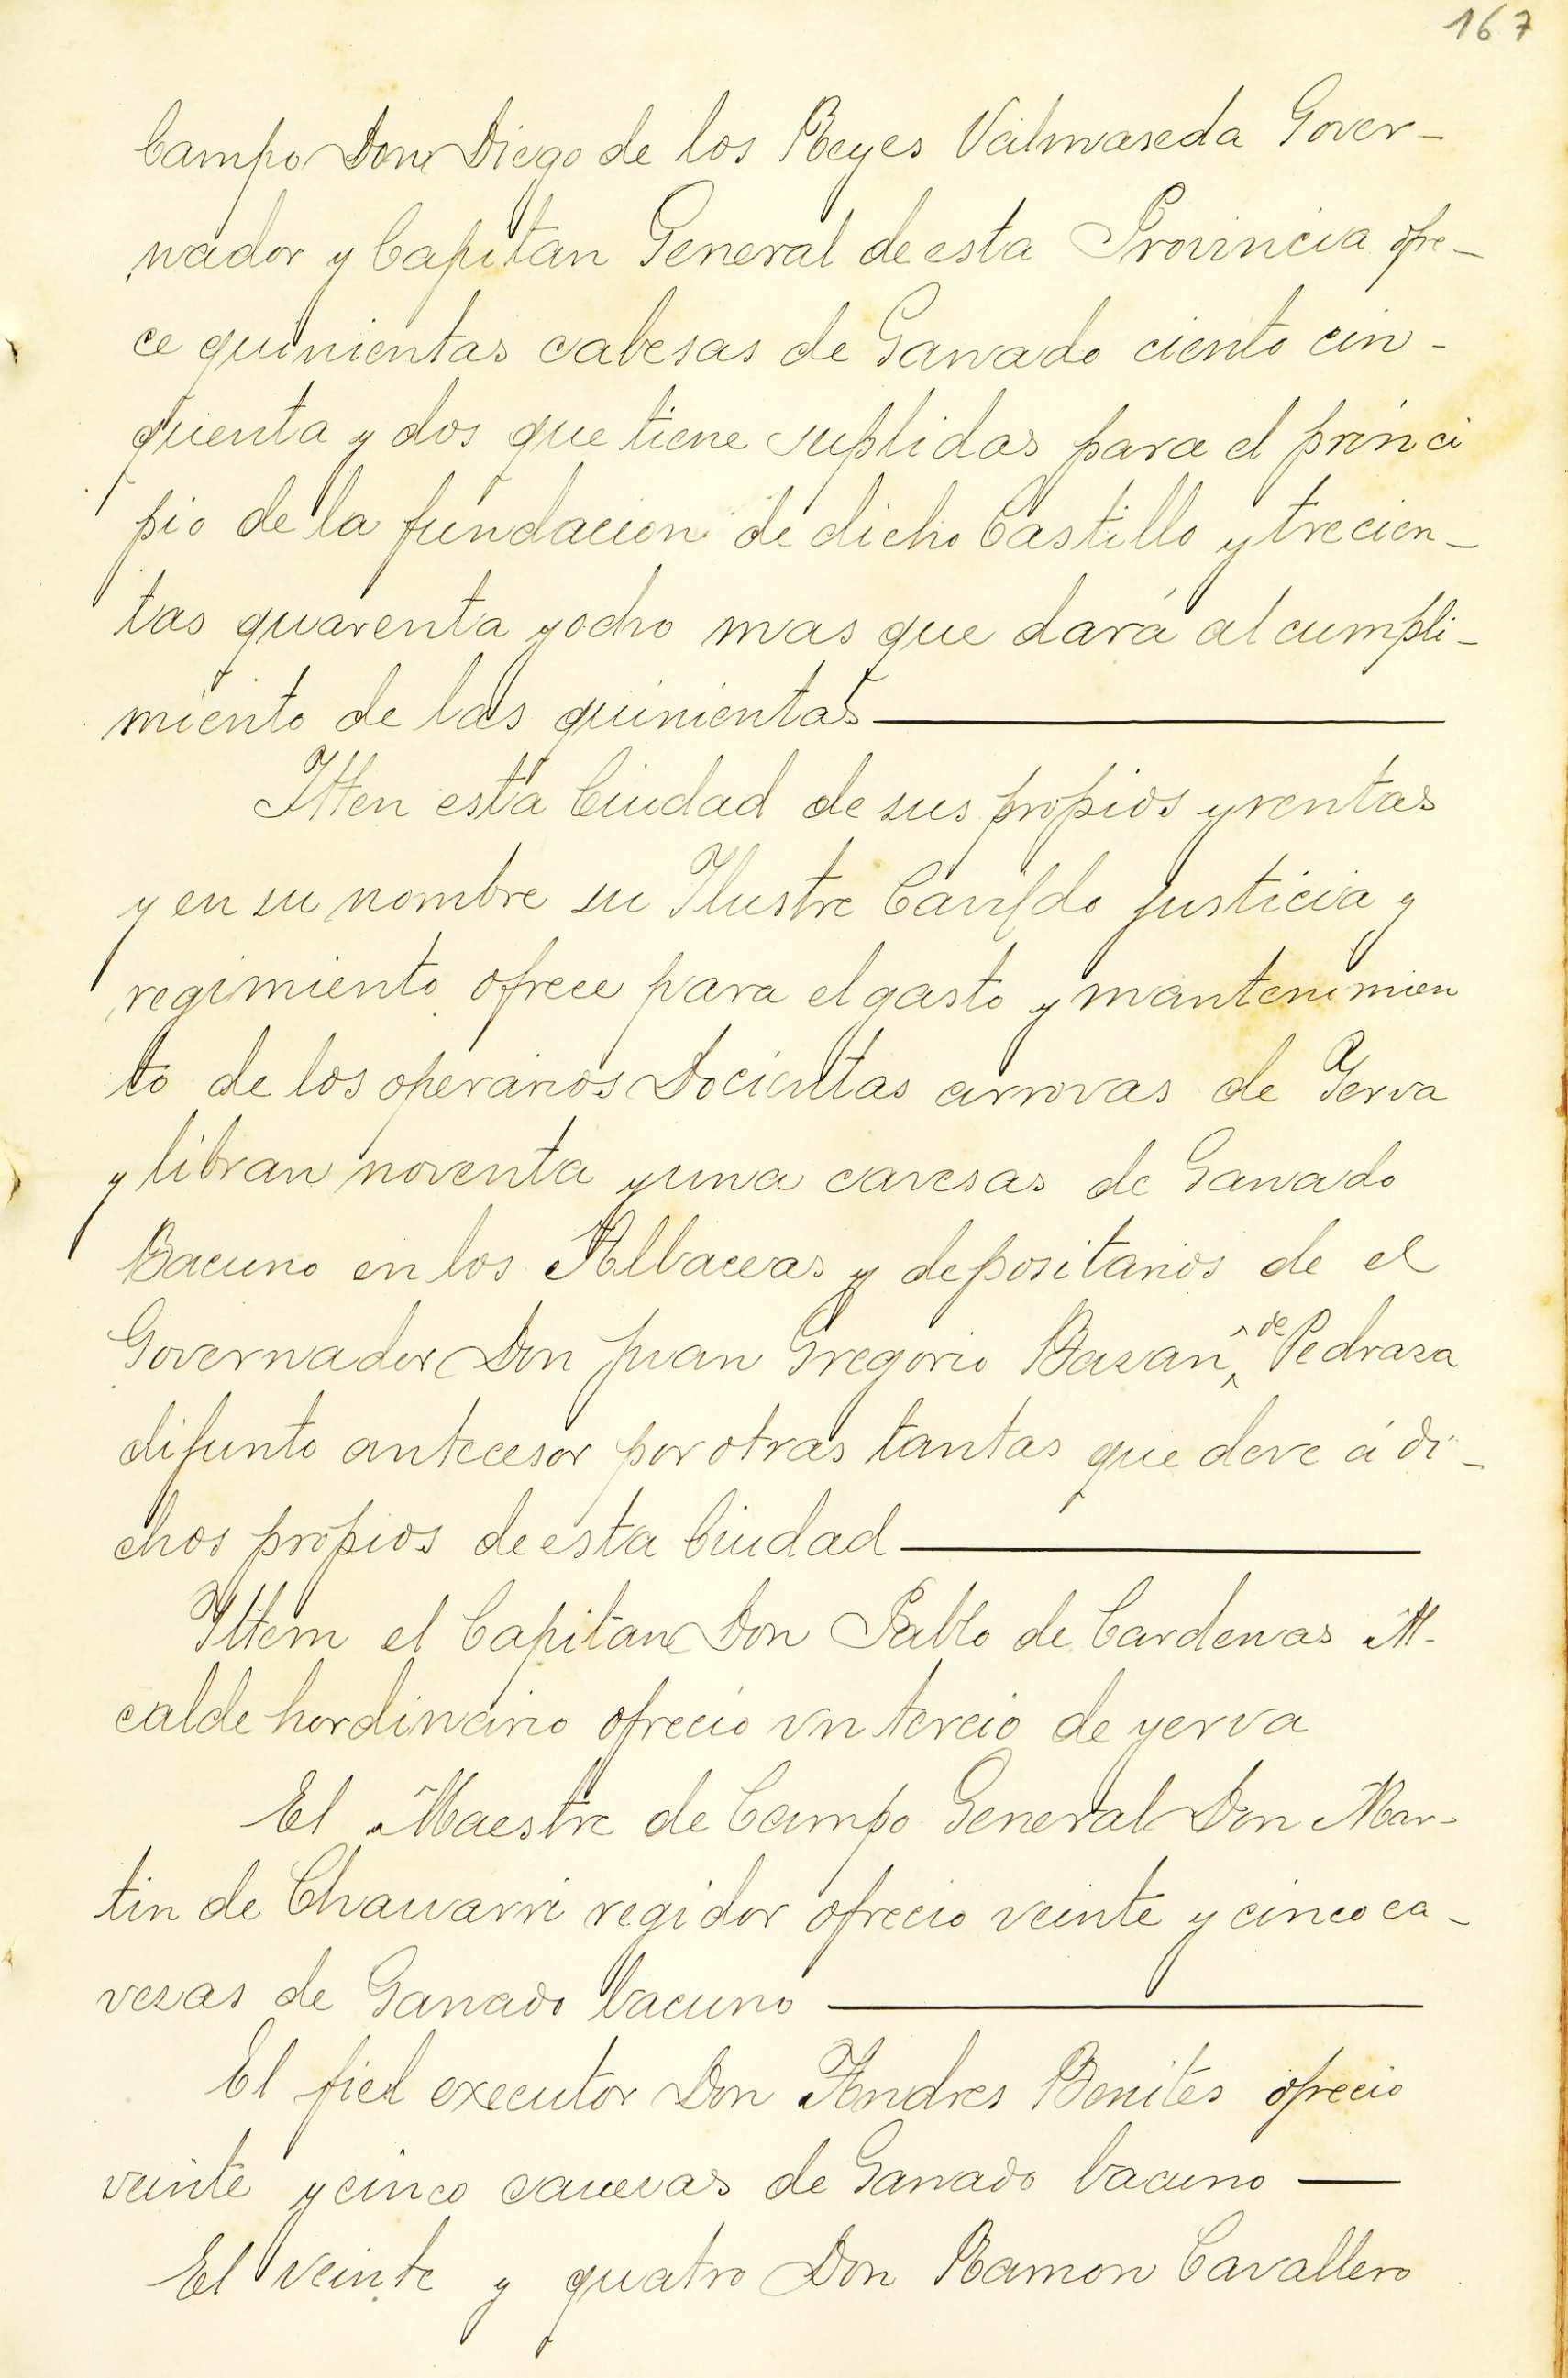 167
Campo Don Diego de los Reyes Valmaseda Gover-
nador y Capitan General de esta Provincia ofre-
ce quinientas cabesas de Ganado ciento cin-
quenta y dos que tiene suplidas para el princi
pio de la fundacion de dicho Castillo y trecien-
tas quarenta y ocho mas que dará al cumpli-
miento de las quinientas
Itten esta Ciudad de sus propios y rentas
y en su nombre su Ilustre Cavildo justicia y
regimiento ofrece para el gasto y mantenimien
to de los operarios Docientas arrovas de Yerva
y libran noventa y una cavesas de Ganado
Bacuno en los Albaceas y depositarios de el
Governador Don Juan Gregorio Bazan de Pedraza
difunto antecesor por otras tantas que deve á di-
chos propios de esta Ciudad
Ittem el Capitan Don Pablo de Cardenas Al-
calde hordinario ofrecio vn tercio de yerva
El Maestre de Campo General Don Mar-
tin de Chavarri regidor ofrecio veinte y cinco ca-
vezas de Ganado bacuno
El fiel executor Don Andres Benites ofrecio
veinte y cinco cavezas de Ganado bacuno
El veinte y quatro Don Ramon Cavallero